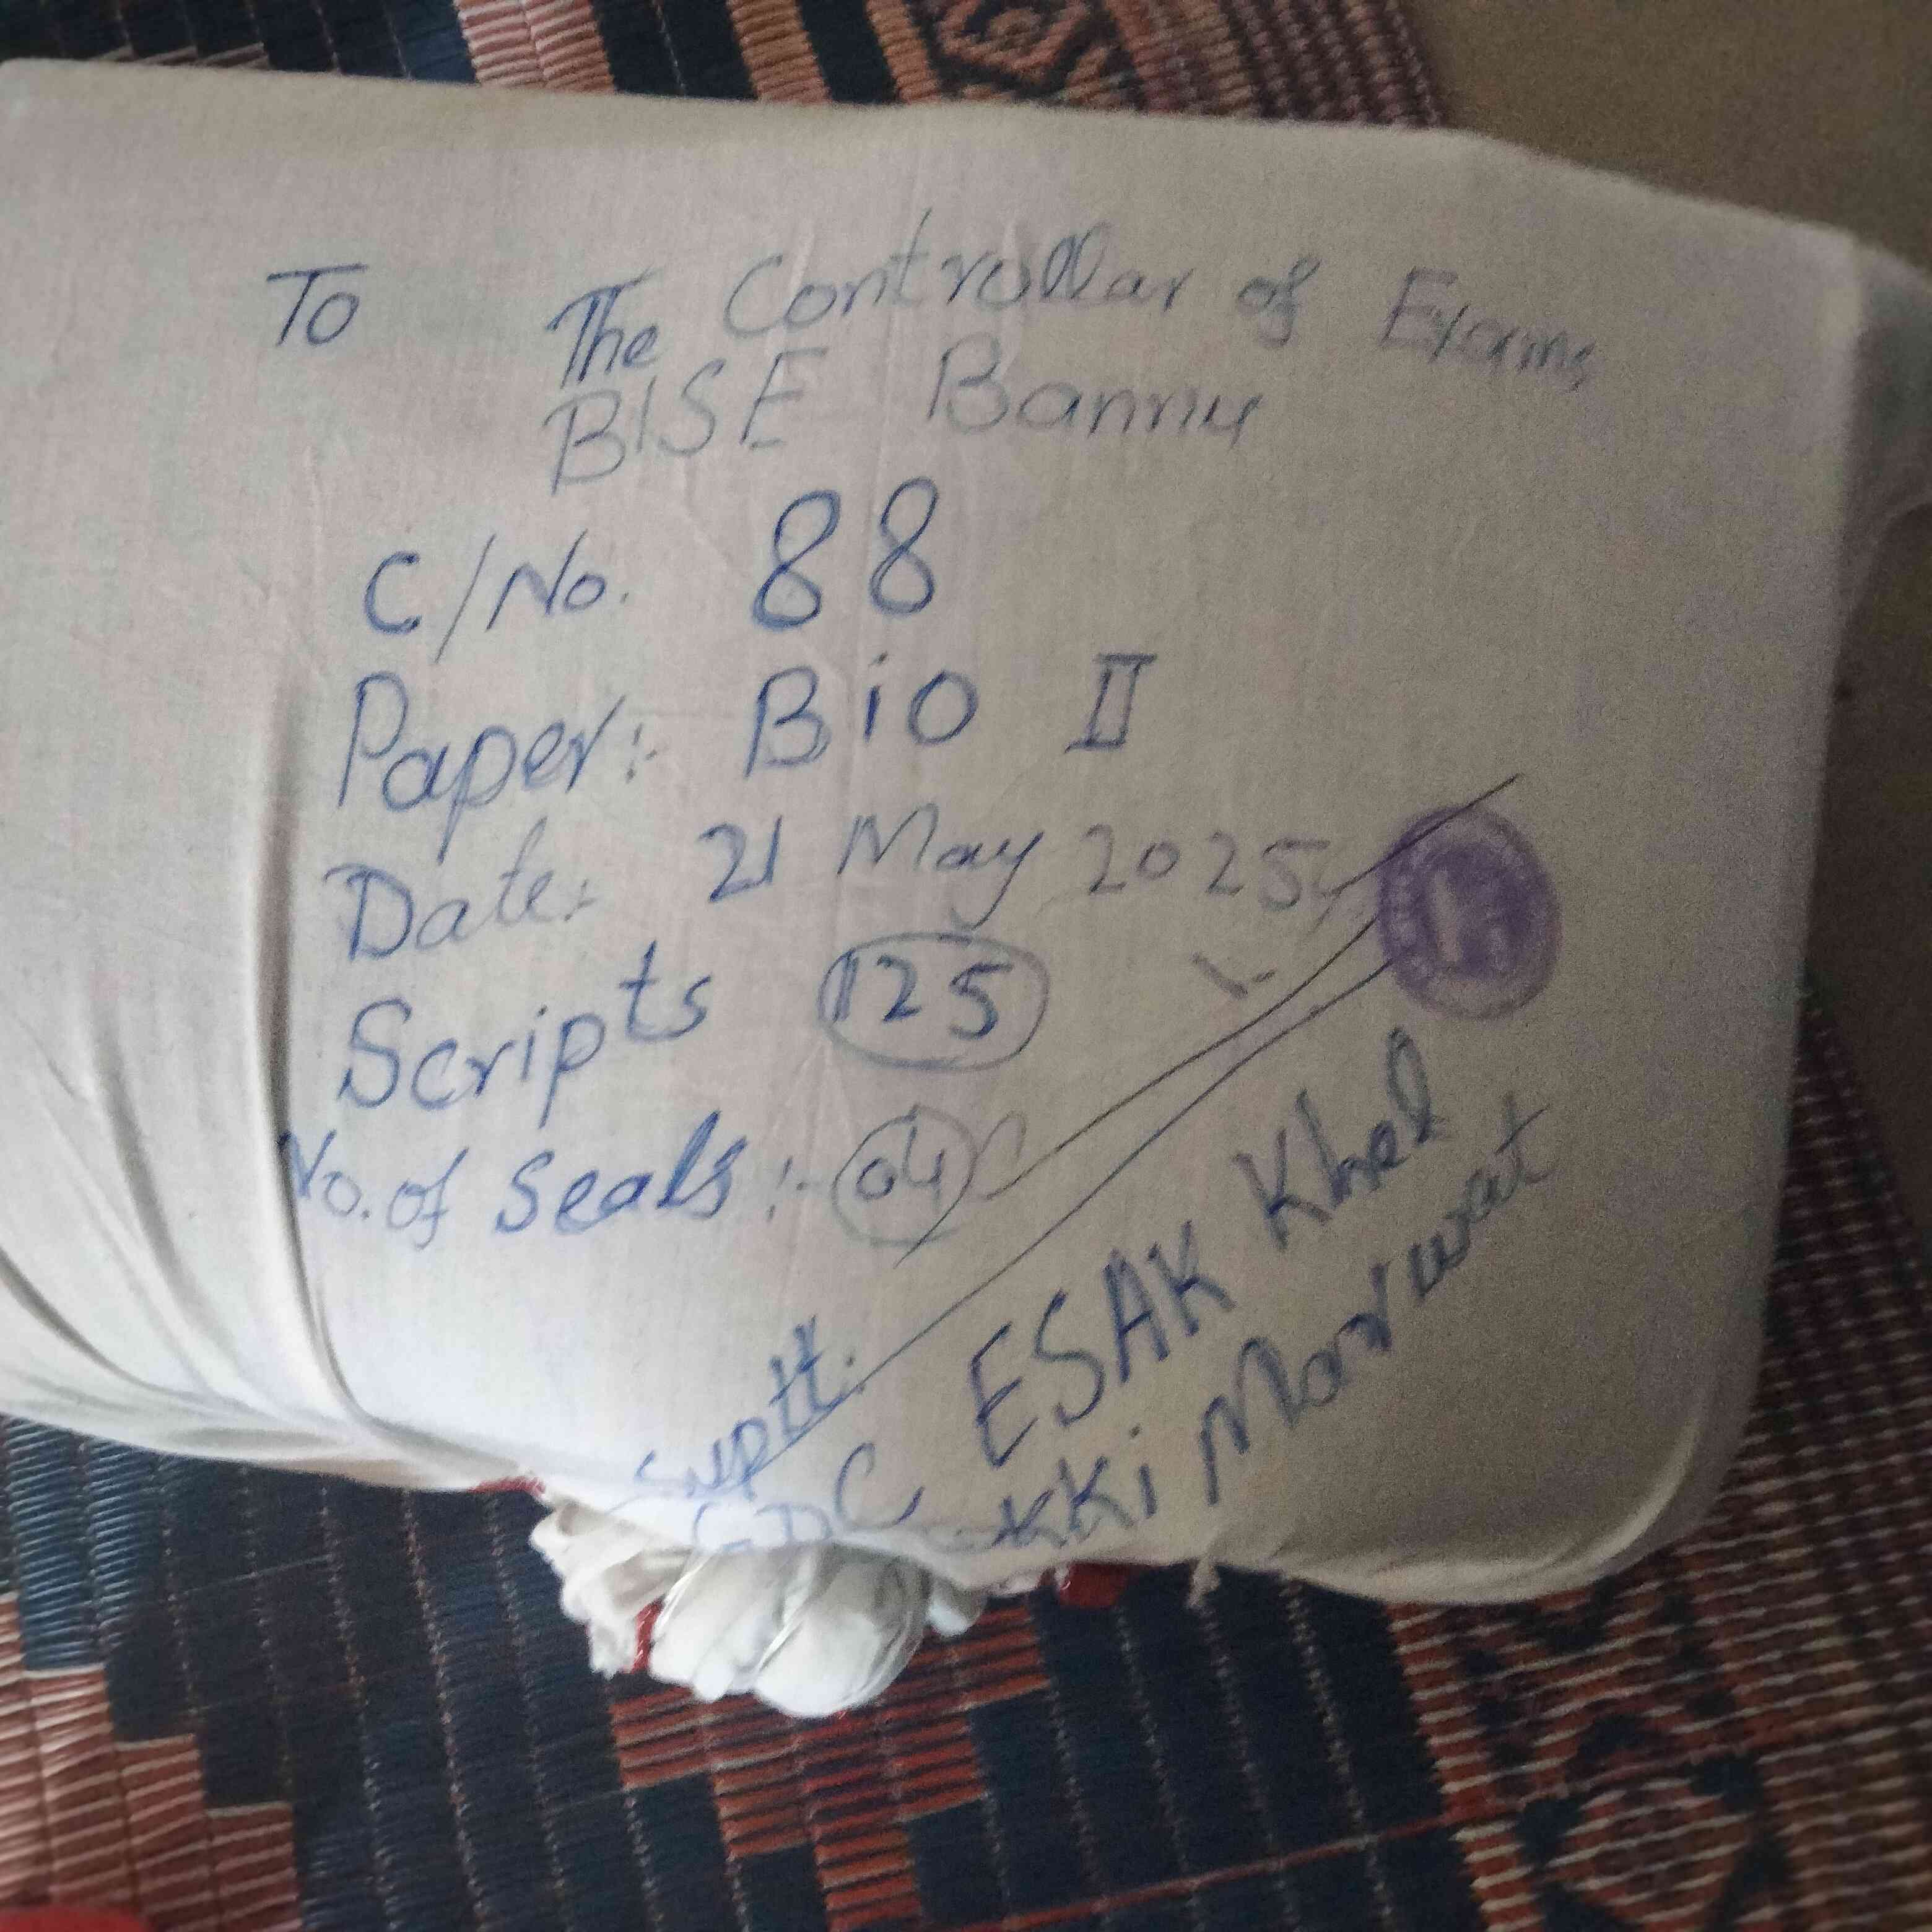 To The Controllar of Exams
BISE Bannu
C/No. 88
Paper:- Bio II
Date:- 21 May 2025
Scripts 125
No. of Seals:- 04
Suptt:
GDC ESAK Khel
Lakki Marwat